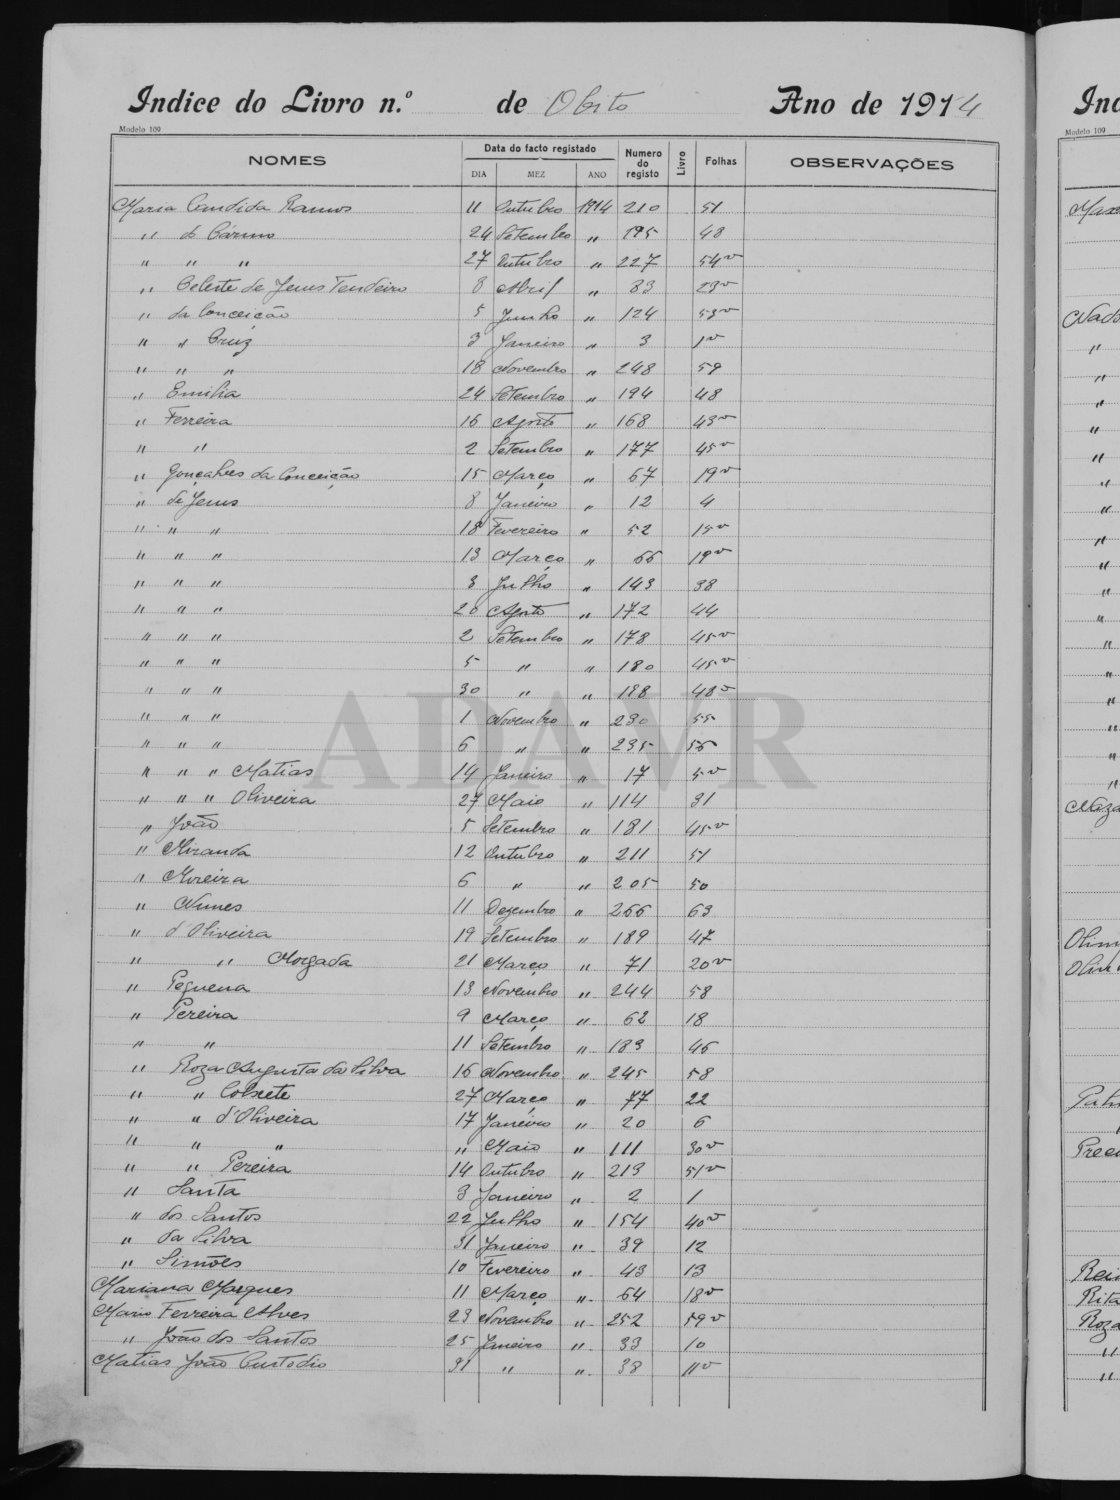 Indice do Livro n.º de Obito Ano de 1914
Modelo 109
NOMES Data do facto registado Numero do registo Livro Folhas OBSERVAÇÕES
DIA MEZ ANO
Maria Candida Ramos 11 Outubro 1914 210 51
" do Carmo 24 Setembro " 195 48
" " " 27 Outubro " 227 54v
" Celeste de Jesus Tendeiro 8 Abril " 83 23v
" da Conceição 5 Junho " 124 33v
" " Cruz 3 Janeiro " 3 1v
" " " 18 Novembro " 248 59
" Emilia 24 Setembro " 194 48
" Ferreira 16 Agosto " 168 43v
" " 2 Setembro " 177 45v
" Gonçalves da Conceição 15 Março " 67 19v
" de Jesus 8 Janeiro " 12 4
" " " 18 Fevereiro " 52 15v
" " " 13 Março " 66 19v
" " " 3 Julho " 143 38
" " " 20 Agosto " 172 44
" " " 2 Setembro " 178 45v
" " " 5 " " 180 45v
" " " 30 " " 198 48v
" " " 1 Novembro " 230 55
" " " 6 " " 235 56
" " " Matias 14 Janeiro " 17 5v
" " " Oliveira 27 Maio " 114 31
" João 5 Setembro " 181 45v
" Miranda 12 Outubro " 211 51
" Moreira 6 " " 205 50
" Nunes 11 Dezembro " 266 63
" d'Oliveira 19 Setembro " 189 47
" " Morgada 21 Março " 71 20v
" Pequena 13 Novembro " 244 58
" Pereira 9 Março " 62 18
" " 11 Setembro " 183 46
" Roza Augusta da Silva 16 Novembro " 245 58
" " 27 Março " 77 22
" " d'Oliveira 17 Janeiro " 20 6
" " " " Maio " 111 30v
" " Pereira 14 Outubro " 213 51v
" Santa 3 Janeiro " 2 1
" dos Santos 22 Julho " 154 40v
" da Silva 31 Janeiro " 39 12
" Simões 10 Fevereiro " 43 13
Mariana Marques 11 Março " 64 18v
Mario Ferreira Alves 23 Novembro " 252 59v
" João dos Santos 25 Janeiro " 33 10
Matias João Custodio 31 " " 38 11v
ADAVR
Ind
Modelo 109